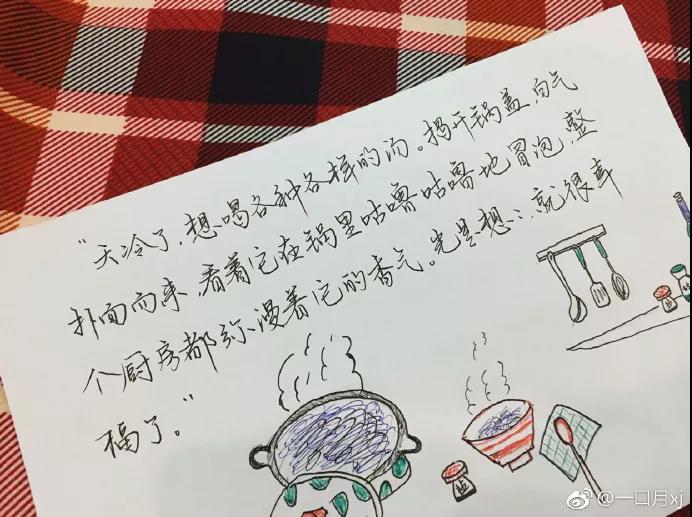 “天冷了，想喝各种各样的汤。揭开锅盖，白气
扑面而来，看着它在锅里咕噜咕噜地冒泡，整
个厨房都弥漫着它的香气。光是想想就很幸
福了。”
盐
@一口月xj